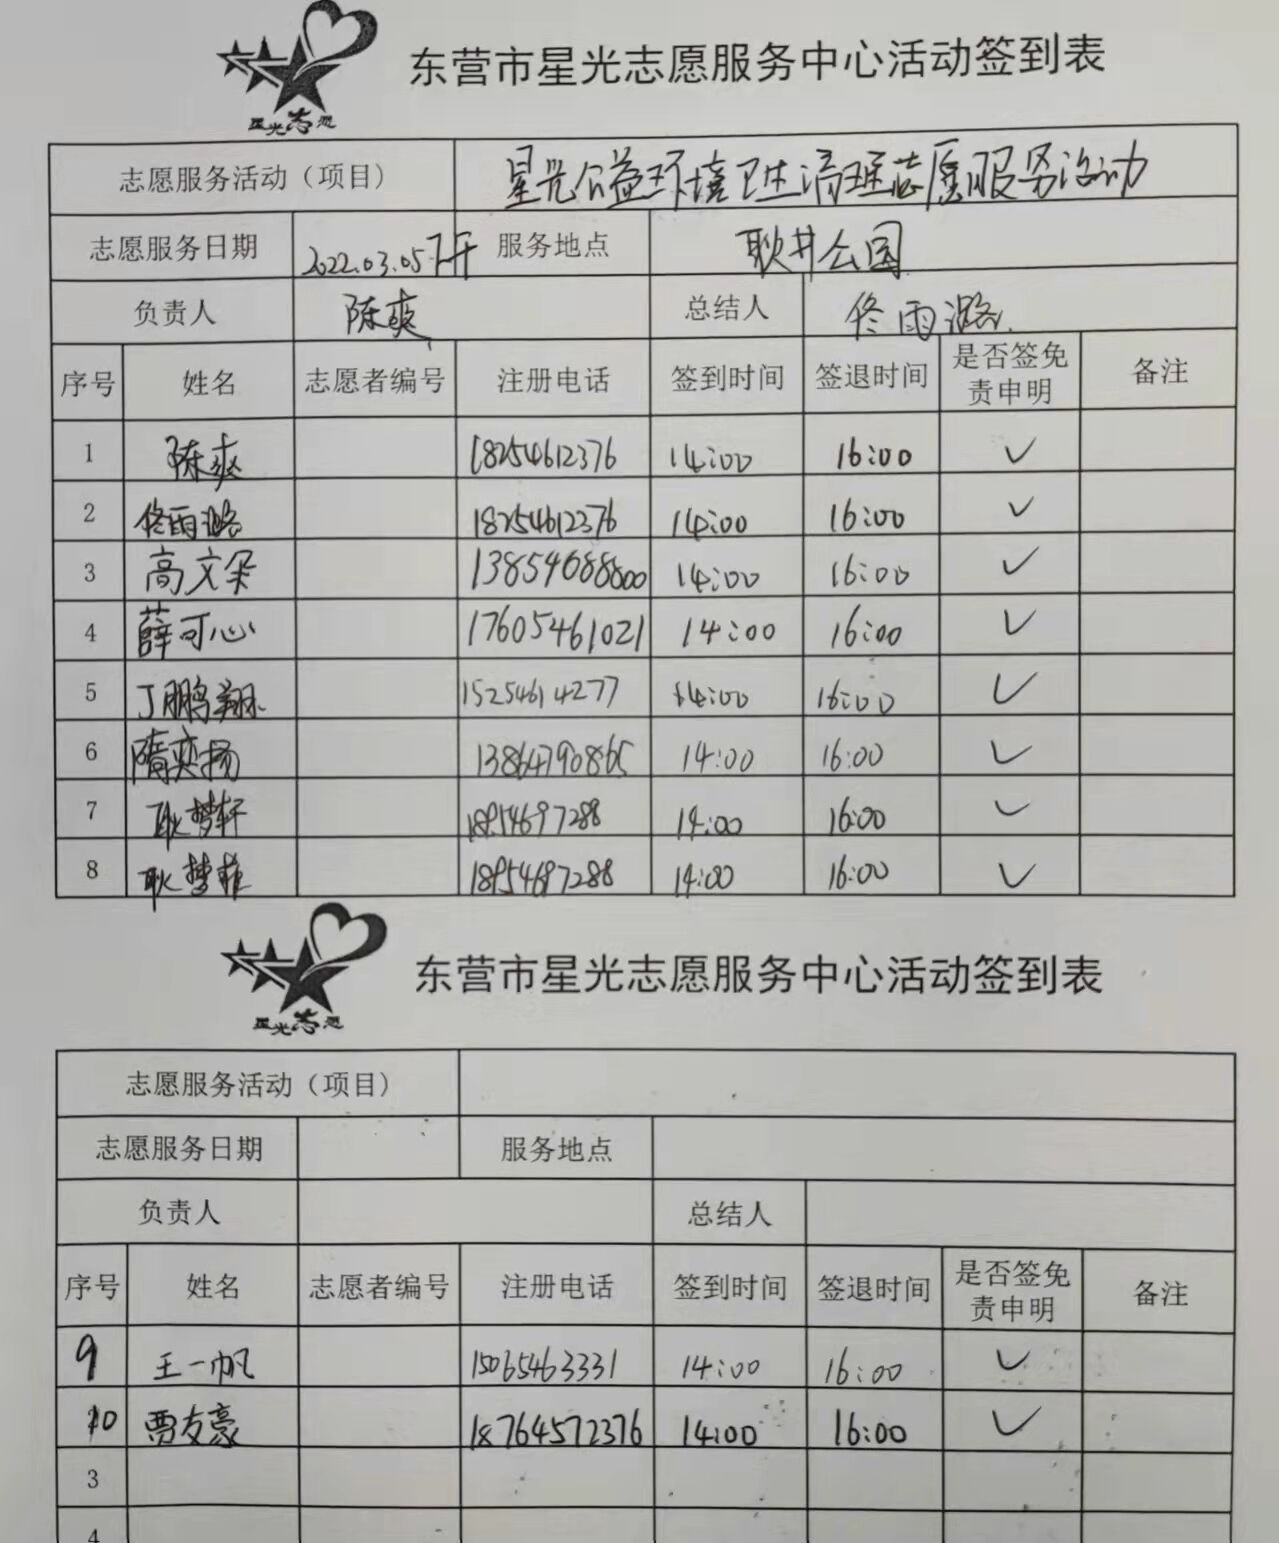 星光志愿
东营市星光志愿服务中心活动签到表
志愿服务活动（项目） 星光公益环境卫生清理志愿服务活动
志愿服务日期 2022.03.05下午 服务地点 耿井公园
负责人 陈爽 总结人 佟雨潞
序号 姓名 志愿者编号 注册电话 签到时间 签退时间 是否签免责申明 备注
1 陈爽 18254612376 14:00 16:00 ✓
2 佟雨潞 18254612376 14:00 16:00 ✓
3 高文朵 13854688800 14:00 16:00 ✓
4 薛可心 17605461021 14:00 16:00 ✓
5 丁鹏翔 15254614277 14:00 16:00 ✓
6 隋奕扬 13864790865 14:00 16:00 ✓
7 耿梦轩 18954697288 14:00 16:00 ✓
8 耿梦菲 18954697288 14:00 16:00 ✓
星光志愿
东营市星光志愿服务中心活动签到表
志愿服务活动（项目）
志愿服务日期 服务地点
负责人 总结人
序号 姓名 志愿者编号 注册电话 签到时间 签退时间 是否签免责申明 备注
9 王一帆 15065463331 14:00 16:00 ✓
10 贾友豪 18764572376 14:00 16:00 ✓
3
4